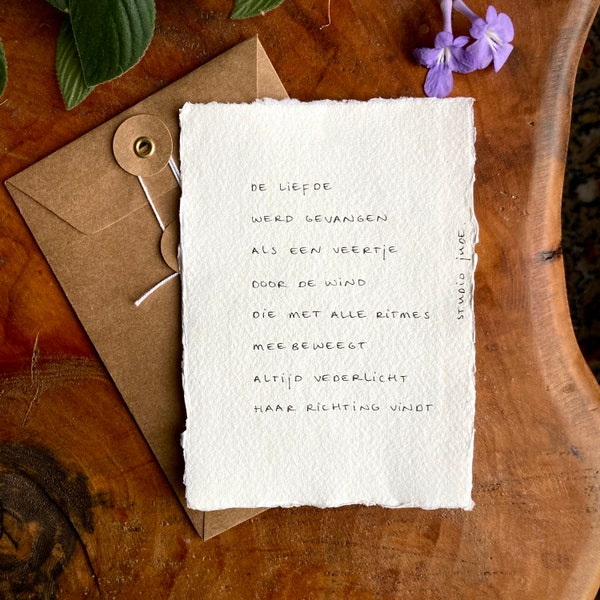 DE LIEFDE
WERD GEVANGEN
ALS EEN VEERTJE
DOOR DE WIND
DIE MET ALLE RITMES
MEEBEWEEGT
ALTIJD VEDERLICHT
HAAR RICHTING VINDT
STUDIO JUDE